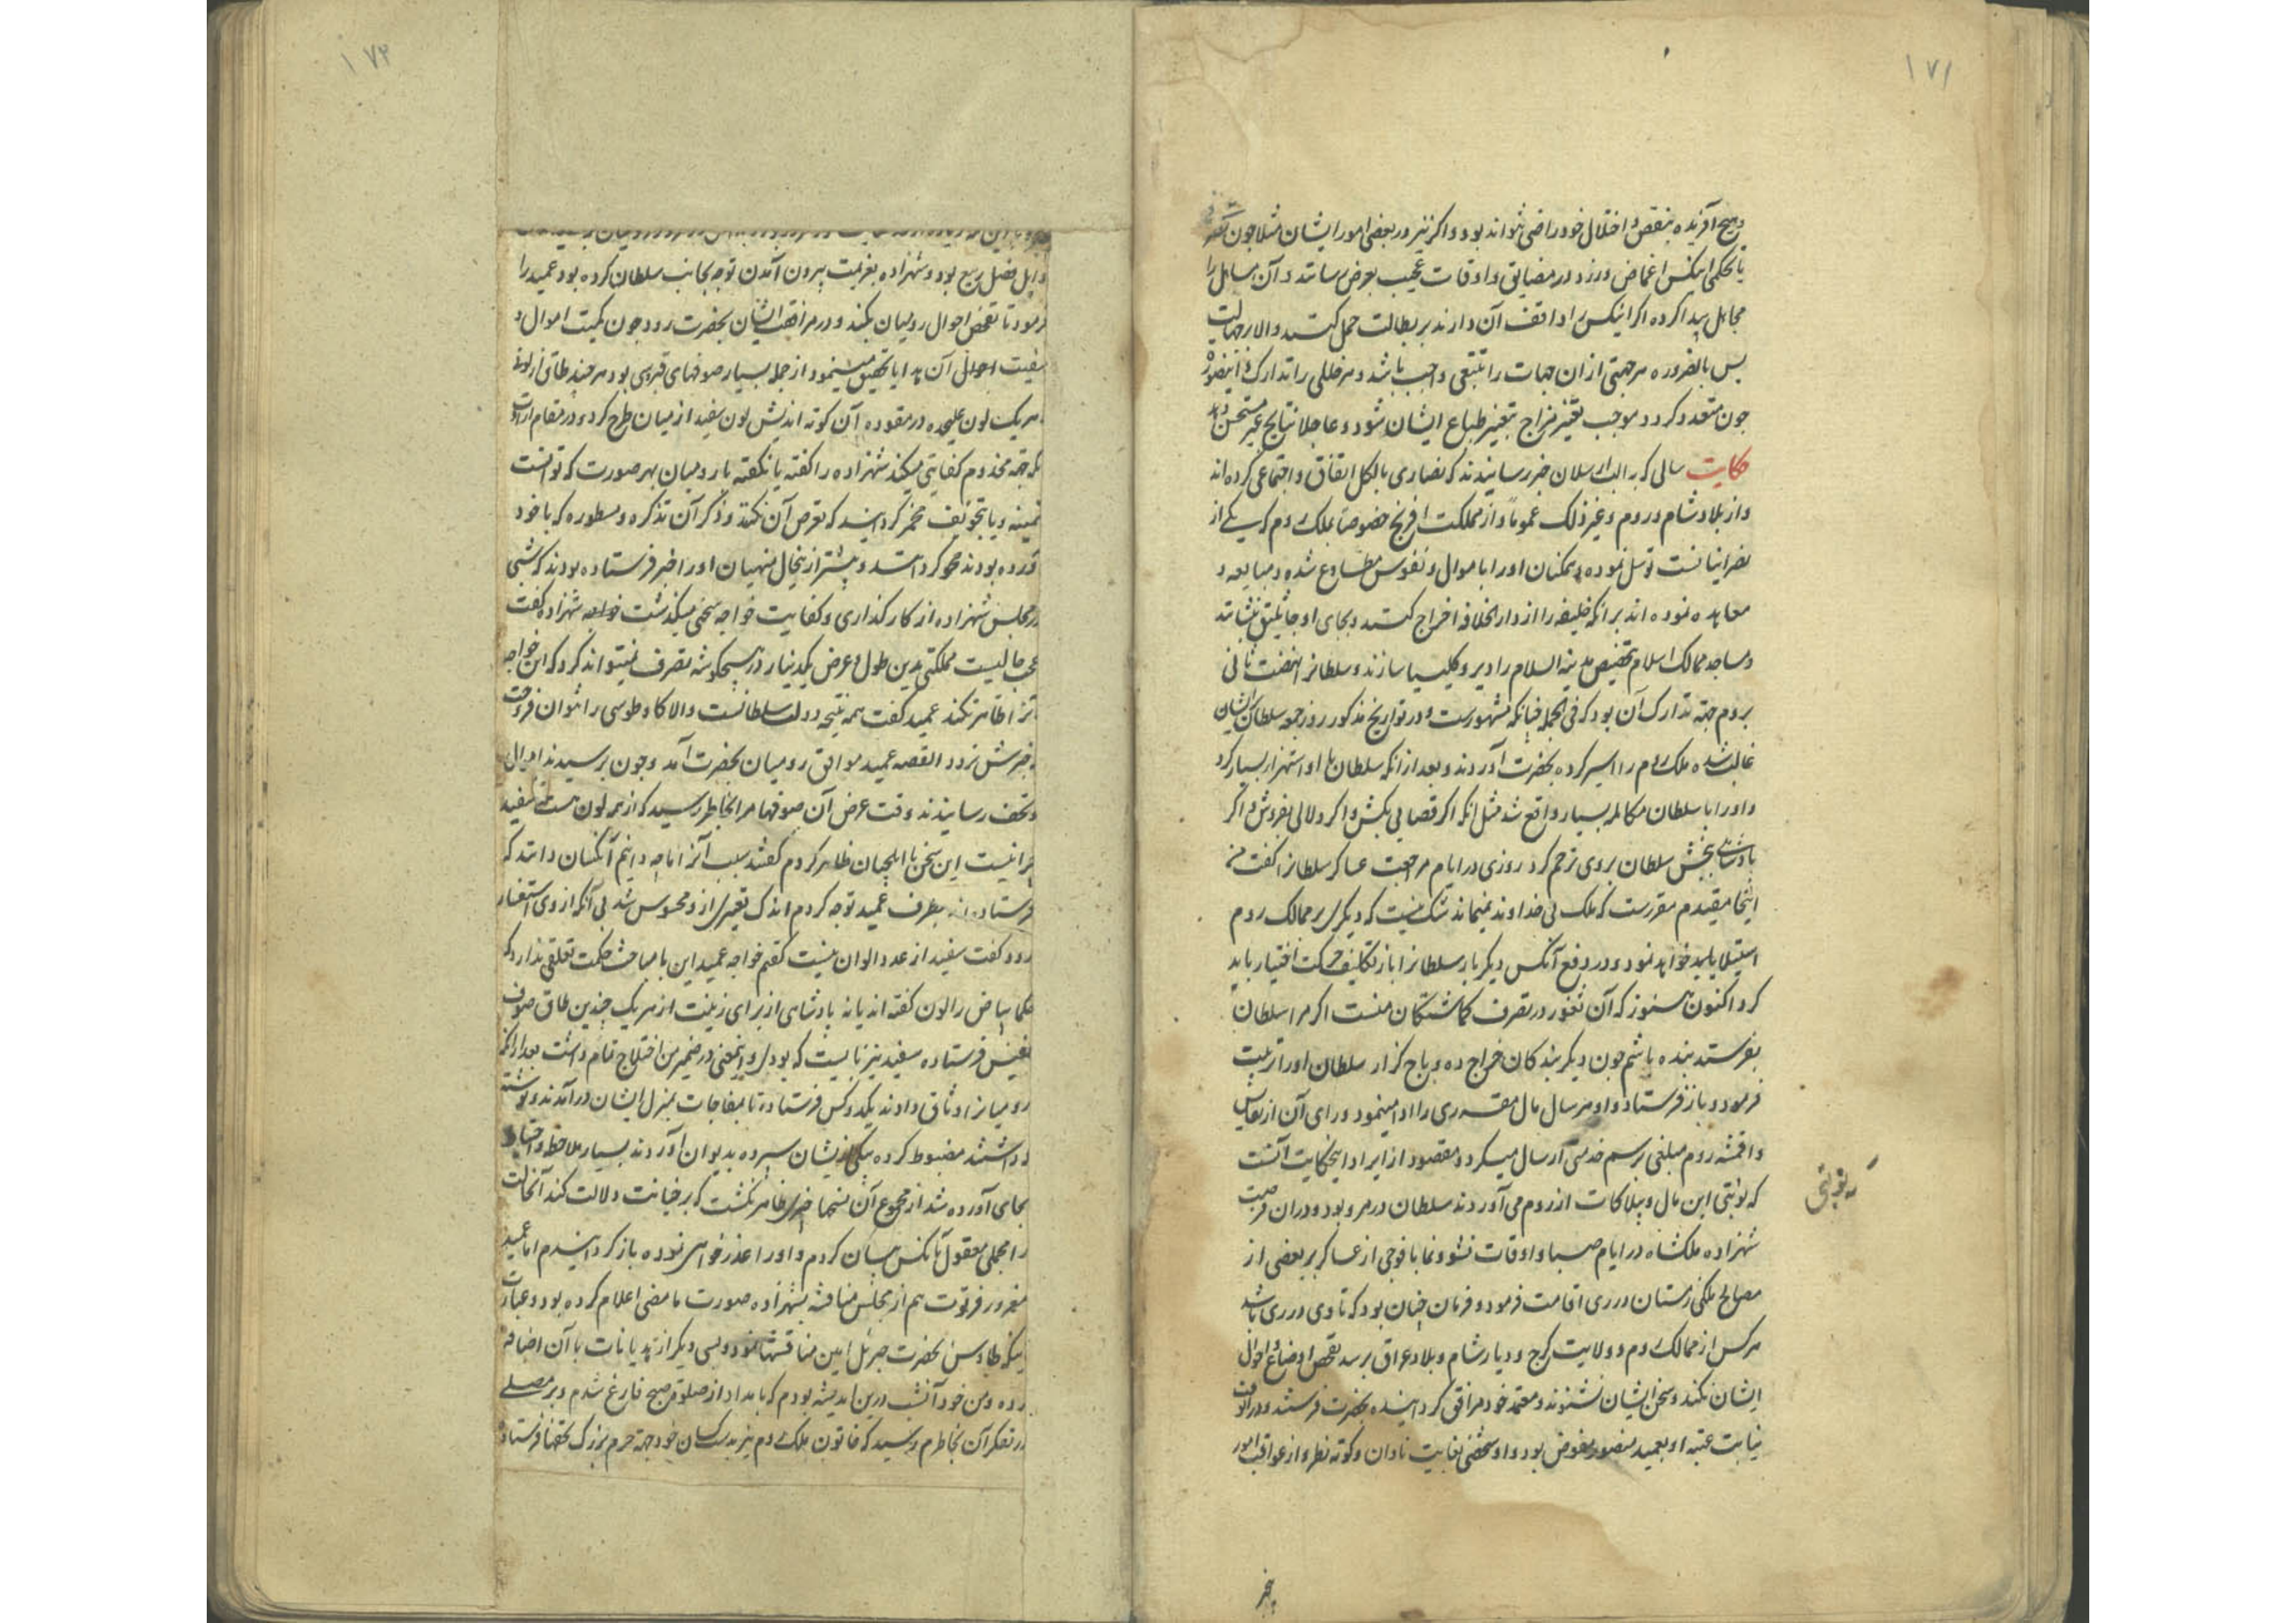 ۱۷۱
و هیچ آفریده بنقص و اختلال خود راضی نتواند بود و اکر نیز در بعضی امور ایشان مثلا چون
یا تحکمی اینکس اغماض ورزد در مضایق و اوقات عجیب بعرض رسانند و آن مسایل را
مجاهل پیدا کرده اکر اینکس را واقف آن دارند بر بطالت حمل کنند والا بر جهالت
پس بالضروره هر جهتی از ان جهات را تتبعی واجب باشد و هر خللی را تدارک و اینصور
چون متعدد کردد موجب تغیر مزاج بتغیر طباع ایشان شود و عاجلا نتایج غیر مستحسن دهد
حکایت سالی که به الب ارسلان خبر رسانیدند که نصاری بالکل اتفاق و اجتماعی کرده اند
و از بلاد شام و روم و غیر ذلک عموماً و از مملکت افرنج خصوصا بملک روم که یکی از
نصرانیانست توسل نموده و همکنان او را باموال و نفوس مطاوع شده و مبایعه و
معاهده نموده اند بر انکه خلیفه را از دار الخلافه اخراج کنند و بجای او جاثلیق بنشانند
و مساجد ممالک اسلام بتخصیص مدینة السلام را دیر و کلیسیا سازند و سلطانرا نهضت ثانی
بروم جهة تدارک آن بود که فی الجمله چنانکه مشهورست و در تواریخ مذکور روز جمعه سلطان بر ایشان
غالب شده ملک روم را اسیر کرده بحضرت آوردند و بعد از انکه سلطان با او استهزا بسیار کرد
و او را با سلطان مکالمه بسیار واقع شد مثل انکه اکر قصابی بکش و اکر دلالی بفروش و اکر
بادشاهی ببخش سلطان بر وی ترحم کرد روزی در ایام مراجعت عساکر سلطانرا کفت من
اینجا مقیدم مقررست که ملک بی خداوند نمیماند شک نیست که دیکری بر ممالک روم
استیلا باید خواهد نمود و در دفع آنکس دیکر بار سلطانرا باز تکلیف حرکت اختیار باید
کرد اکنون هنوز که آن ثغور در تصرف کماشتکان منست اکر مرا سلطان
بفرستد بنده باشم چون دیکر بندکان خراج ده و باج کزار سلطان او را تربیت
فرمود و باز فرستاد و او هر سال مال مقرری را ادا مینمود ورای آن از نفایس
و اقمشه روم مبلغی برسم خدمتی ارسال میکرد و مقصود از ایراد اینحکایت آنست
که نوبتی این مال و بیلاکات از روم می آوردند سلطان در مرو بود و در ان فرصت
شهزاده ملکشاه در ایام صبا و اوقات نشو و نما با فوجی از عساکر بر بعضی از
مصالح ملکی زمستان در ری اقامت فرمود و فرمان چنان بود که تا وی در ری باشد
هرکس از ممالک روم و ولایت کرج و دیار شام و بلاد عراق برسد تفحص اوضاع و احوال
ایشان بکند و سخن ایشان بشنوند و معتمد خود مرافق کردانیده بحضرت فرستند و در انوقت
نیابت عتبه او بعمید منصور مفوض بود و او شخصی بغایت نادان و کوته نظر و از عواقب امور
۱۷۲
اوایل فصل ربیع بود و شهزاده بعزیمت بیرون آمدن توجه بجانب سلطان کرده بود عمید را
فرمود تا تفحص احوال رومیان بکند و در مرافقت ایشان بحضرت رود چون کمیت اموال و
کیفیت احوال آن هدایا تحقیق مینمود از جمله بسیار صوفهای قبرسی بود هر چند طاقی از لونی
هر یک لون علیحده در مقوده آن کوته اندیش لون سفید از میان طرح کرد و در مقام ارادت
که جهة مخدوم کفایتی میکند شهزاده را کفته یا نکفته با رومیان بهر صورت که توانست
و یا بتخویف مخمر کردانید که تعرض آن نکنند و ذکر آن تذکره و مسطوره که با خود
آورده بودند محو کردانند و پیشتر از ینحال منهیان او را خبر فرستاده بودند که شبی
در مجلس شهزاده از کار کذاری و کفایت خواجه سخنی میکذشت خواجه شهزاده کفت
عجب حالیست مملکتی بدین طول و عرض یکدینار در هیچکوشه تصرف نمیتواند کرد که این خواجه
آنرا ظاهر نکند عمید کفت همه نتیجه دولت سلطانست والا کاو طوسی را نتوان فروخت
القصه عمید موافق رومیان بحضرت آمد و چون برسیدند اموال
و تحف رسانیدند وقت عرض آن صوفها مرا بخاطر رسید که از هر لون هست سفید
چرا نیست این سخن با ایلچیان ظاهر کردم کفتند سبب آنرا ما چه دانیم آنکسان دانند که
فرستاده اند بطرف عمید توجه کردم اندک تغییری از و محسوس شد بی آنکه از وی استفسار
رود کفت سفید از عدد الوان نیست کفتم خواجه عمید این با مباحث حکمت تعلقی ندارد که
حکما بیاض را لون کفته اند یا نه بادشاهی از برای زینت از هر یک چندین طاق صوف
نفیس فرستاده سفید نیز بایست که بودی و اینمعنی در ضمیر من اختلاج تمام داشت بعد از انکه
رومیانرا وثاق دادند یکدو کس فرستادم تا بمفاجات بمنزل ایشان در آمدند و نوشته
داشتند مضبوط کرده بیکی از ایشان سپرده بدیوان آوردند بسیار ملاحظه و احتیاط
بجای آورده شد از مجموع آن نسخها خبری ظاهر نکشت که بر خیانت دلالت کند آنحالت
را مجملی معقول بآنکس بیان کردم و او را عذر خواهی نموده باز کردانیدم اما عمید
مغرور فرتوت هم از مجلس مناقشه بشهزاده صورت ما مضی اعلام کرده بود و عبارت
اینکه طاوسی بحضرت جبرئیل امین مناقشتها نمود و بسی دیکر از هذیانات با آن اضافه
کرده و من خود آنشب درین اندیشه بودم که بامداد از صلوة صبح فارغ شدم و بر مصلی
در تفکر آن بخاطرم رسید که خاتون ملک روم نیز بدست کسان خود جهة حرم بزرک تحفها فرستاده